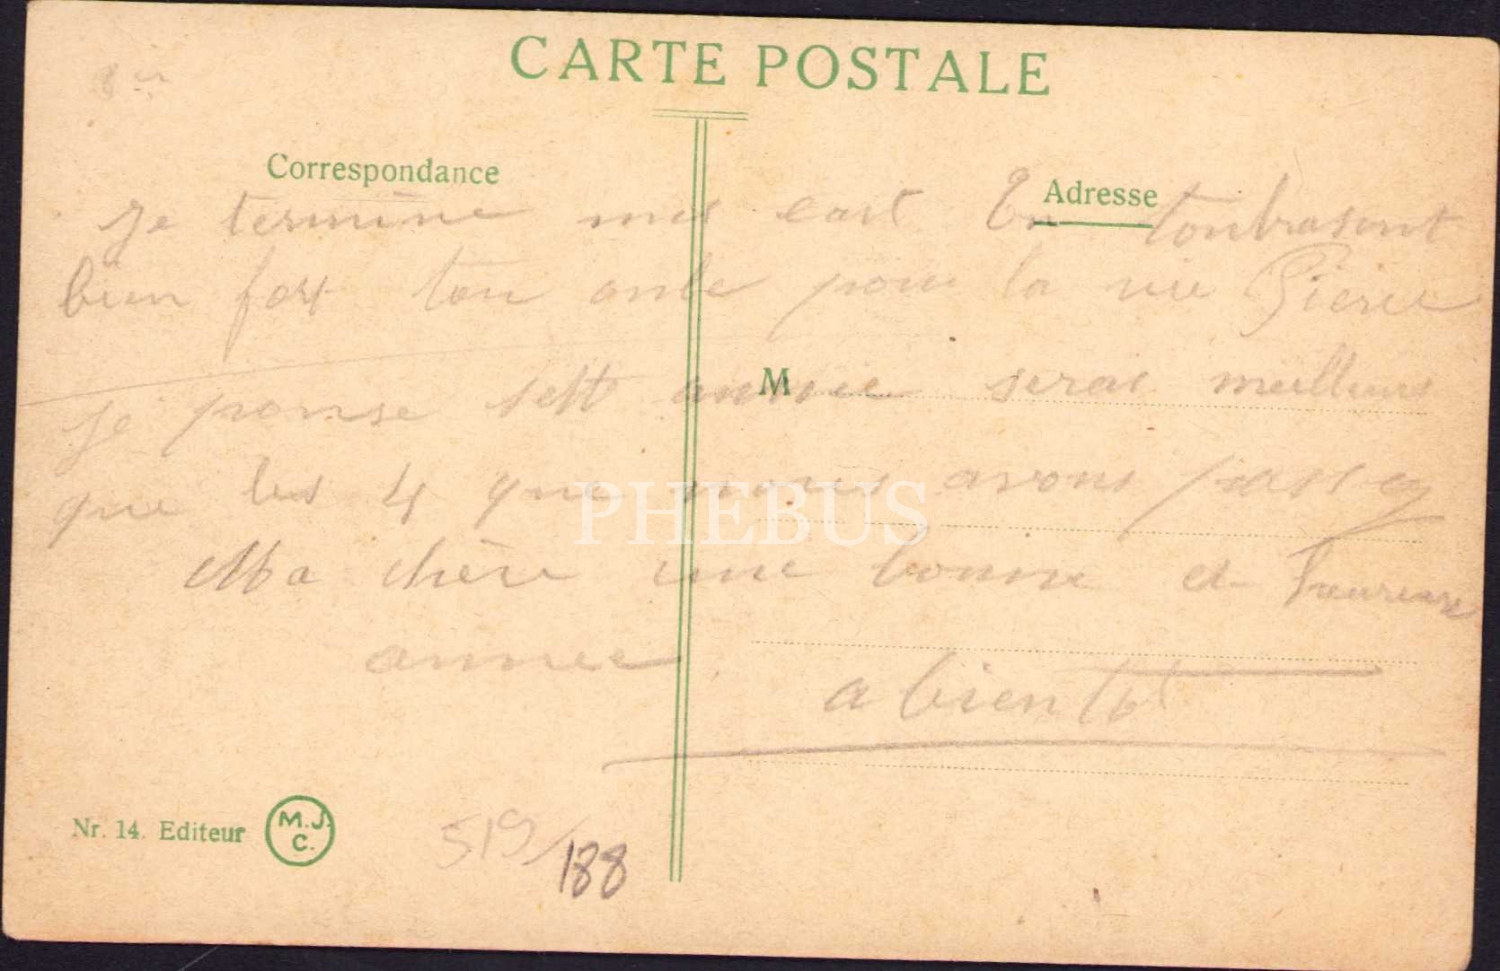 CARTE POSTALE
Correspondance
Adresse
je termine mes cart En tenbrasent
bien fort ton onle pour la vie Pierre
M
je pense sett annee serai meilleure
que les 4 que nous avons passez
PHEBUS
Ma chère une bonne et heureuse
annee
a bientot
Nr. 14. Editeur M.J.C.
519/188